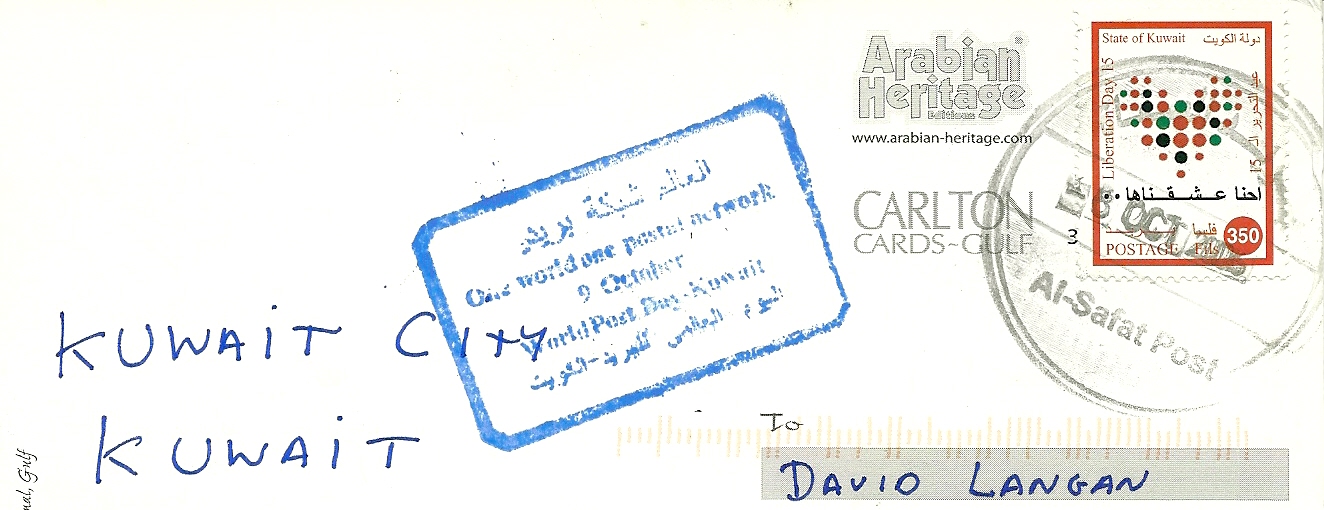 Arabian
Heritage
Editions
www.arabian-heritage.com
CARLTON
CARDS~GULF
3
State of Kuwait دولة الكويت
Liberation Day 15
عيد التحرير الـ 15
احنا عشقناها..
POSTAGE Fils فلسا 350
OCT
Al-Safat Post
العالم شبكة بريد
One world one postal network
9 October
World Post Day-Kuwait
اليوم العالمي للبريد-الكويت
KUWAIT CITY
KUWAIT
To
DAVID LANGAN
nal, Gulf